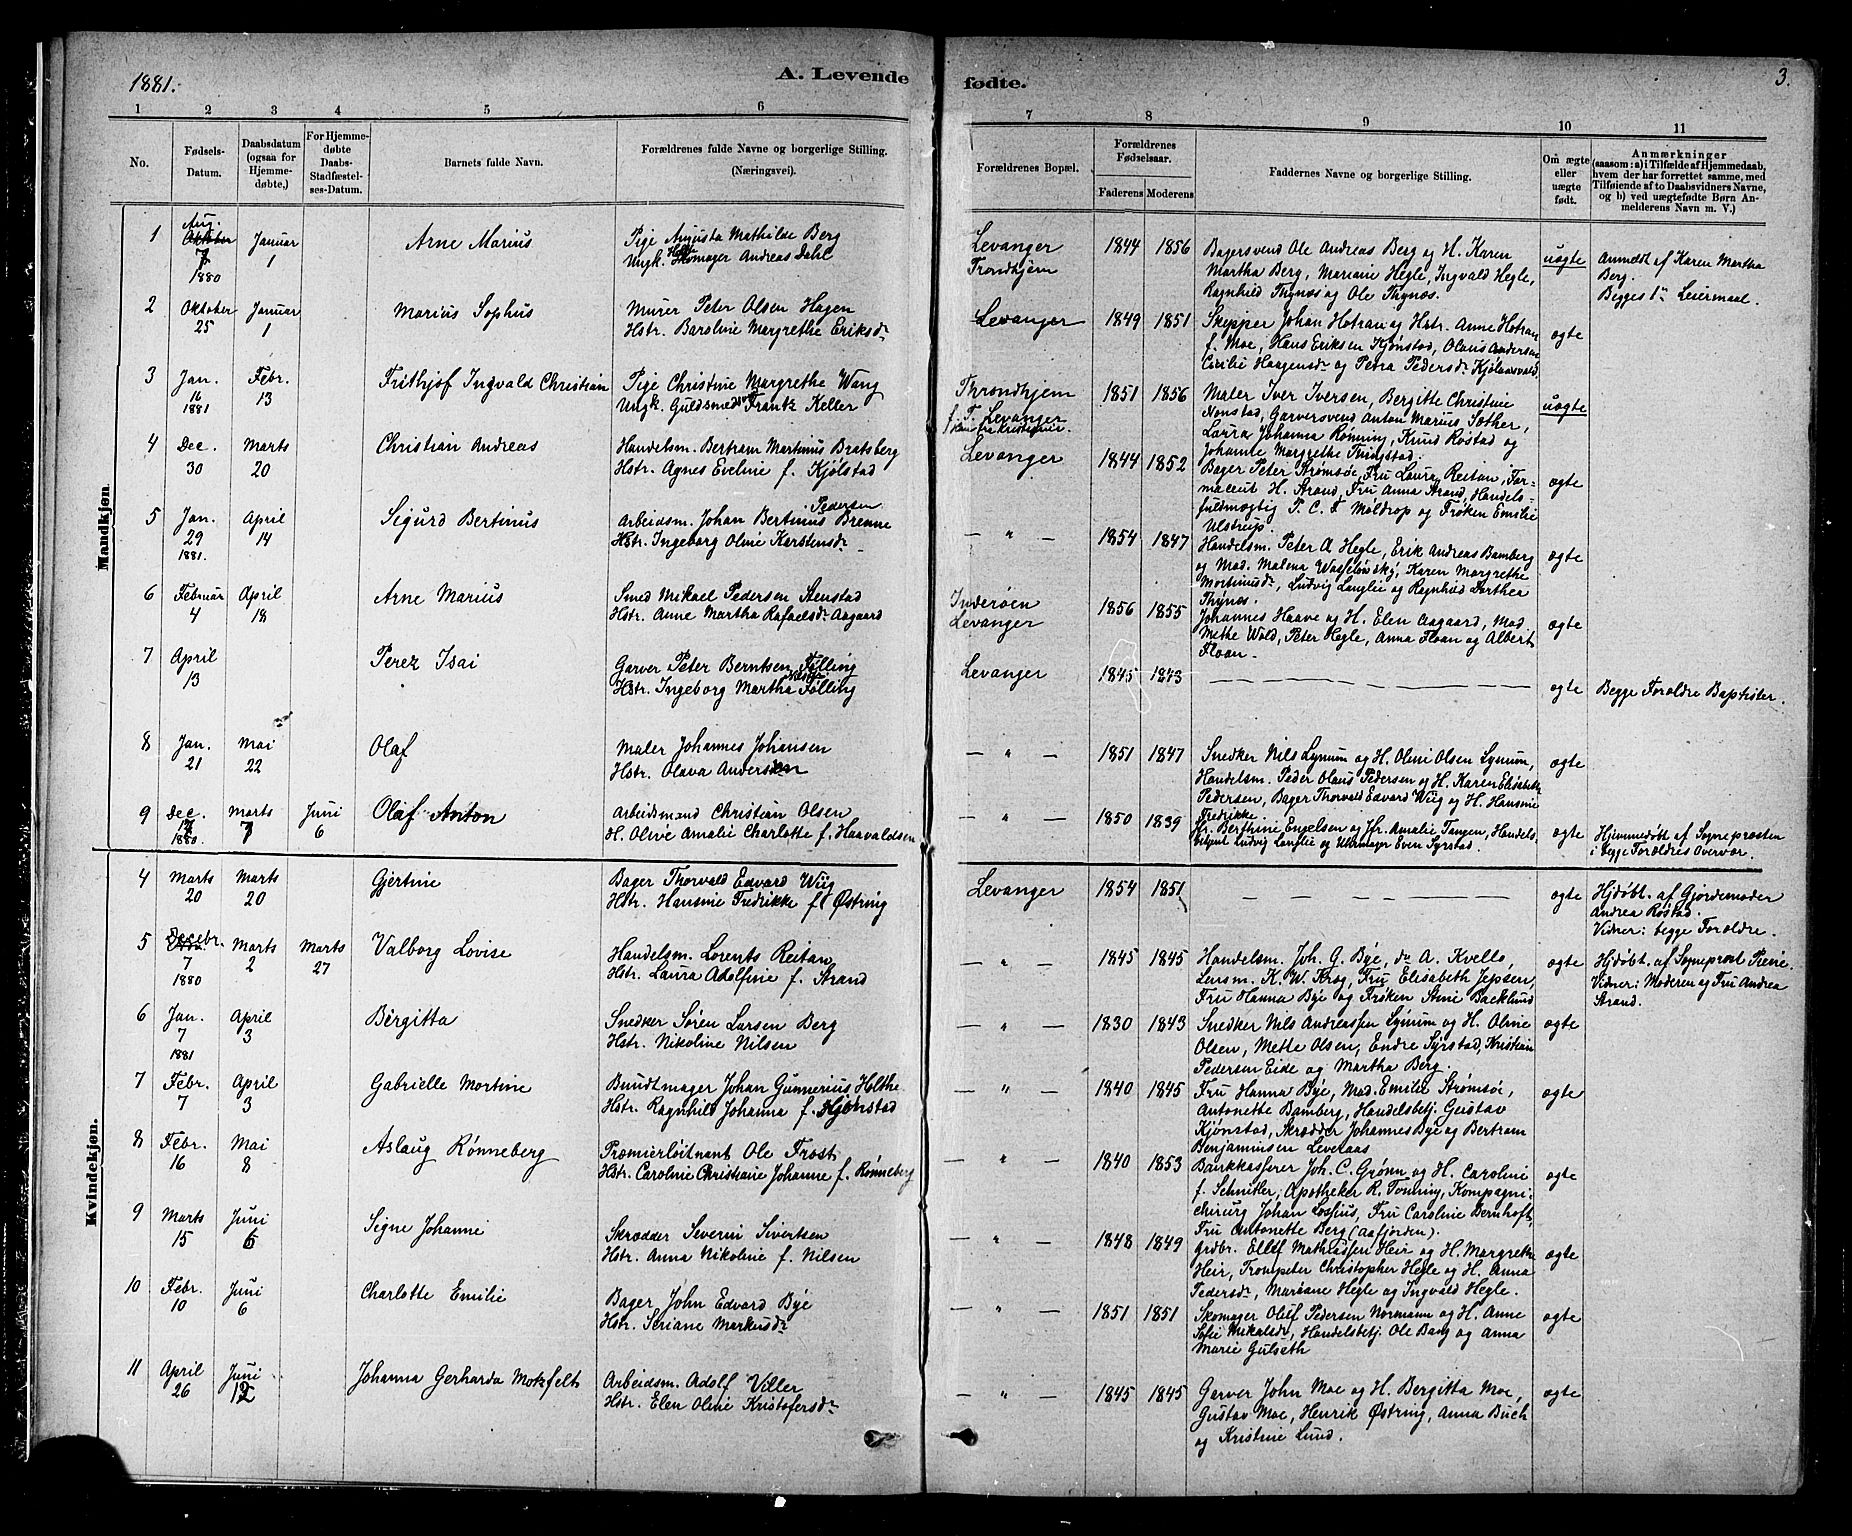 1881.
A. Levende fødte.
3.
1 2 3 4 5 6 7 8 9 10 11
No.
Fødsels-Datum.
Daabsdatum (ogsaa for Hjemme-døbte,)
For Hjemme-døbte Daabs-Stadfæstel-ses-Datum.
Barnets fulde Navn.
Forældrenes fulde Navne og borgerlige Stilling. (Næringsvei).
Forældrenes Bopæl.
Forældrenes Fødselsaar.
Faderens Moderens
Faddernes Navne og borgerlige Stilling.
Om ægte eller uægte født.
Anmærkninger
(saasom: a) i Tilfælde af Hjemmedaab,
hvem der har forrettet samme, med
Tilføiende af to Daabsvidners Navne,
og b) ved uægtefødte Børn An-
melderens Navn m. V.)
Mandkjøn
1 Aug. 7 1880 Januar 1 Arne Marius
Pige Augusta Mathilde Berg
Ungk. Skomager Andreas Dahl
Levanger
Trondhjem
1844 1856
Bagersvend Ole Andreas Berg og H. Karen
Martha Berg, Mariane Hegle, Ingvald Hegle,
Ragnhild Thynæs og Ole Thynæs.
uægte
Anmeldt af Karen Martha
Berg.
Begges 1ste Leiermaal.
2 Oktober 25 Januar 1 Marius Sophus
Murer Peter Olsen Hagen
Hstr. Baroline Margrethe Eriksdr
Levanger 1849 1851
Skipper Johan Hotran og Hstr. Anne Hotran
f. Moe, Hans Eriksen Kjønstad, Olaus Andersen
Cecilie Haagensdr og Petra Pedersdr Kjølaasvald.
ægte
3 Jan. 16 1881 Febr. 13 Frithjof Ingvald Christian
Pige Christine Margrethe Wang
Ungk. Guldsmedsv. Frantz Keller
Throndhjem
f. T. Levanger
han fra Kristiania.
1851 1856
Maler Iver Iversen, Bergitte Christine
Nonstad, Garversvend Anton Marius Sæther,
Laura Johanna Rønning, Knud Røstad og
Johanne Margrethe Thingstad.
uægte
4 Dec. 30 Marts 20 Christian Andreas
Handelsm. Bertram Martinus Bratsberg
Hstr. Agnes Eveline f. Kjølstad
Levanger 1844 1852
Bager Peter Strømsøe, Fru Laura Reitan, Far-
maceut H. Strand, Fru Anna Strand, Handels-
fuldmægtig P. C. F. Møldrop og Frøken Emilie
Ulstrup.
ægte
5 Jan. 29 1881. April 14 Sigurd Bertinus
Arbeidsm. Johan Bertinus Pedersen Brenne
Hstr. Ingeborg Oline Karstensdr
— " — 1854 1847
Handelsm. Peter A Hegle, Erik Andreas Bamberg
og Mad. Malena Wasselowsky, Karen Margrethe
Mortinusdr, Ludvig Langlie og Ragnhild Dorthea
Thynæs.
ægte
6 Februar 4 April 18 Arne Marius
Smed Mikael Pedersen Stenstad
Hstr. Anne Martha Rafaelsdr Aagaard
Inderøen
Levanger
1856 1855
Johannes Haave og H. Elen Aagaard, Mad.
Methe Wold, Peter Hegle, Anna Floan og Albert
Floan.
ægte
7 April 13 Perez Isai
Garver Peter Berntsen Følling
Hstr. Ingeborg Martha Følling
Levanger 1845 1843
— — — — — — —
ægte
Begge Forældre Baptister.
8 Jan. 21 Mai 22 Olaf
Maler Johannes Johansen
Hstr. Olava Andersen
— " — 1851 1847
Snedker Nils Lynum og H. Oline Olsen Lynum,
Handelsm. Peder Olaus Pedersen og H. Karen Elisabeth
Pedersen, Bager Thorvald Edvard Wiig og H. Hansine
Fredrikke.
ægte
9 Dec. 17 1880. Marts 7 Juni 6 Olaf Anton
Arbeidsmand Christian Olsen
H. Olive Amalie Charlotte f. Haavaldsen
— " — 1850 1839
Jfr. Berthine Engelsen og Jfr. Amalie Tangen, Handels-
betjent Ludvig Langlie og Uhrmager Even Syrstad.
ægte
Hjemmedøbt af Sogneprosten
i begge Forældres Overvær.
Kvindekjøn.
4 Marts 20 Marts 20 Gjertine
Bager Thorvald Edvard Wiig
Hstr. Hansine Fredrikke f. Østring
Levanger 1854 1851
— — — — — — —
ægte
Hjdøbt. af Gjordemoder
Andrea Røstad.
Vidner: begge Forældre.
5 Decebr. 7 1880 Marts 2 Marts 27 Valborg Lovise
Handelsm. Lorents Reitan
Hstr. Laura Adolfine f. Strand
— " — 1845 1845
Handelsm. Joh. G. Bye, do A. Kvello,
Lensm. K. W. Krog, Fru Elisabeth Jepsen,
Fru Hanna Bye og Frøken Stine Backlund
ægte
Hjdøbt. af Sogneprost
Vidner: Moderen og Fru Andrea
Strand.
6 Jan. 7 1881 April 3 Bergitta
Snedker Søren Larsen Berg
Hstr. Nikoline Nilsen
— " — 1830 1843
Snedker Nils Andreassen Lynum og H. Oline
Olsen, Mette Olsen, Endre Syrstad, Kristian
Pedersen Eide og Martha Berg.
ægte
7 Febr. 7 April 3 Gabrielle Mortine
Bundtmager Johan Gunnerius Holthe
Hstr. Ragnhild Johanna f. Hjønstad
— " — 1840 1845
Fru Hanna Bye, Mad. Emilie Strømsøe,
Antonette Bamberg, Handelsbetj. Gustav
Kjønstad, Skrædder Johannes Bye og Bertram
Benjaminsen Leveraas
ægte
8 Febr. 16 Mai 8 Aslaug Rønneberg
Premierløitnant Ole Frost
Hstr. Caroline Christiane Johanne f. Rønneberg
— " — 1840 1853
Bankkasserer Joh. C. Grønn og H. Caroline
f. Schnitler, Apotheker R. Tønning, Kompagni-
chirurg Johan Lossius, Fru Caroline Bernhoft,
Fru Antonette Berg (Aafjorden).
ægte
9 Marts 15 Juni 6 Signe Johanne
Skrædder Severin Sivertsen
Hstr. Anna Nikoline f. Nilsen
— " — 1848 1849
Grdbr. Ellef Mathiassen Heir og H. Margrethe
Heir, Trompeter Christopher Hegle og H. Anna
Pedersdr, Mariane Hegle og Ingvald Hegle.
ægte
10 Febr. 10 Juni 6 Charlotte Emilie
Bager John Edvard Bye
Hstr. Seriane Markusdr
— " — 1851 1851
Skomager Oluf Pedersen Normann og H. Anne
Sofie Mikalsdr, Handelsbetj. Ole Bang og Anna
Marie Gulseth
ægte
11 April 26 Juni 12 Johanna Gerharda Motzfelt
Arbeidsm. Adolf Viller
Hstr. Elen Oline Kristofersdr
— " — 1845 1845
Garver John Moe og H. Bergitta Moe,
Gustav Moe, Henrik Østring, Anna Buch
og Kristine Lund.
ægte